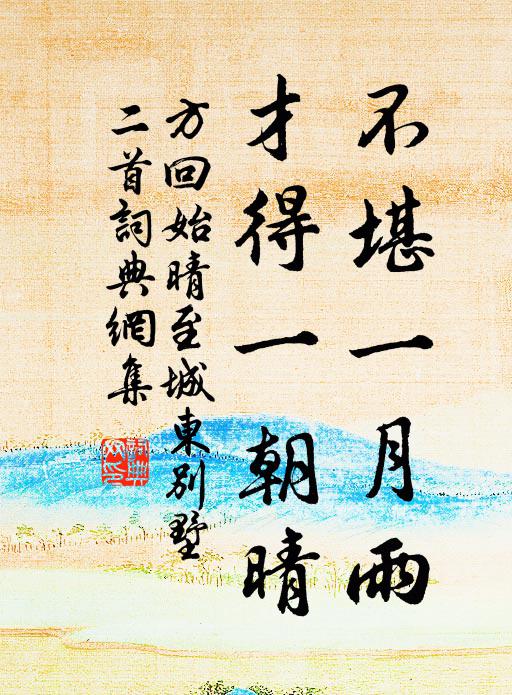 不堪一月雨
才得一朝晴
方回始晴至城東別墅
二首詞典網集